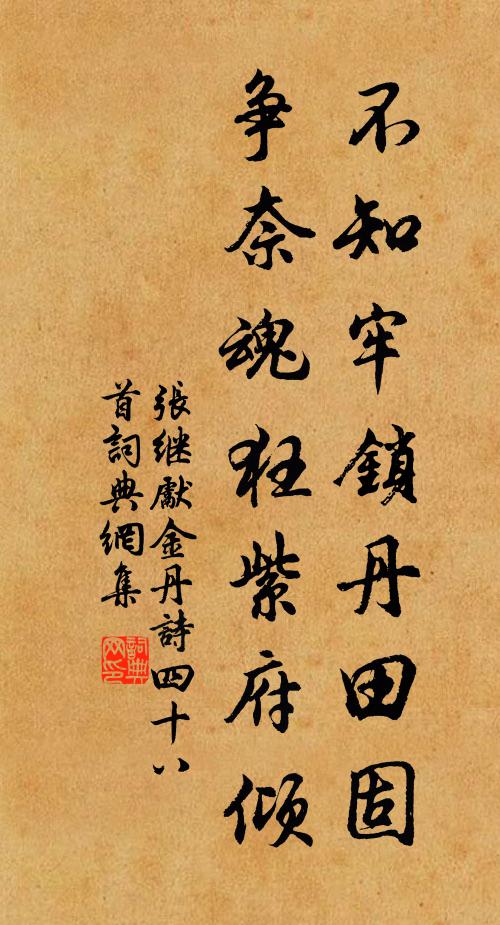 不知牢鎖丹田固
争奈魂狂紫府傾
張继獻金丹詩四十八
首詞典網集
詞典
网印